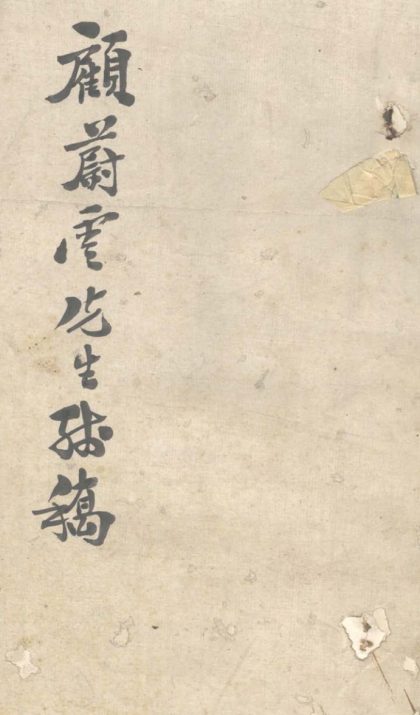 顧蔚雲先生殘稿